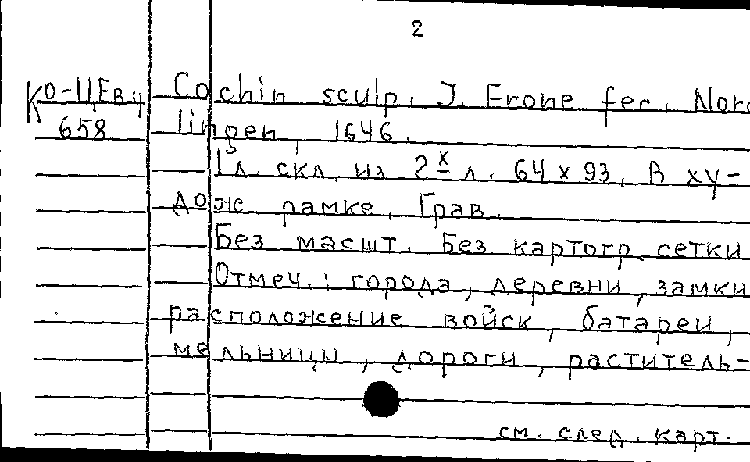 2
Ко-ЦЕв4 Cochin sculp. J. Frone fec. Nord
658 lingen, 1646.
1 л. скл. из 2х л. 64 x 93. В ху-
дож рамке, Грав.
Без масшт. Без картогр. сетки
Отмеч.: города, деревни, замки
расположение войск, батареи,
мельницы, дороги, раститель-
см. след. карт.